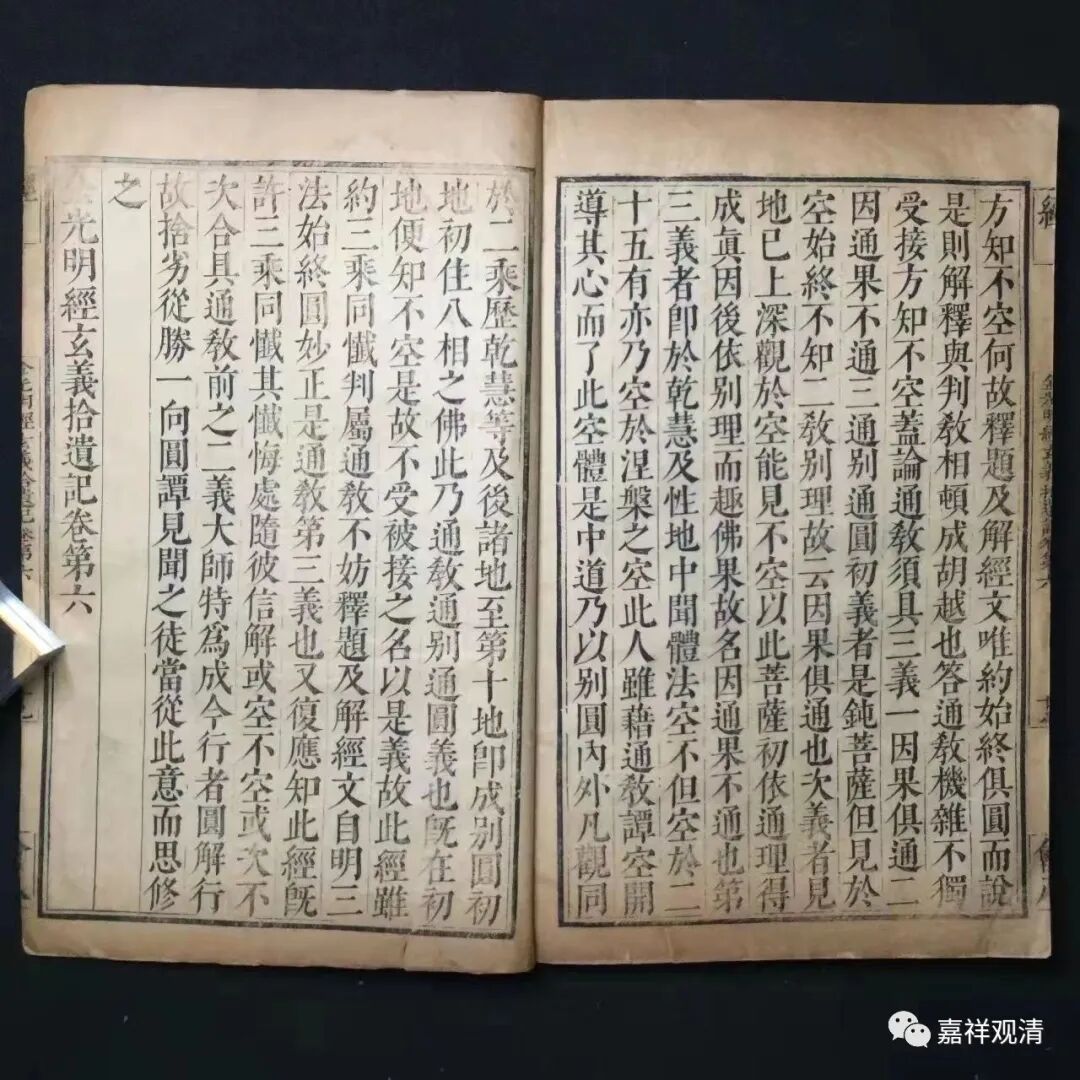 方知不空何故釋題及解經文唯約始終俱圓而說
是則解釋與判敎相頓成胡越也答通敎機雜不獨
受接方知不空蓋論通敎須具三義一因果俱通二
因通果不通三通別通圓初義者是鈍菩薩但見於
空始終不知二敎別理故云因果俱通也次義者見
地已上深觀於空能見不空以此菩薩初依通理得
成眞因後依別理而趣佛果故名因通果不通也第
三義者卽於乾慧及性地中聞體法空不但空於二
十五有亦乃空於涅槃之空此人雖藉通敎譚空開
導其心而了此空體是中道乃以別圓內外凡觀同
於二乘歷乾慧等及後諸地至第十地卽成別圓初
地初住八相之佛此乃通敎通別通圓義也旣在初
地便知不空是故不受被接之名以是義故此經雖
約三乘同懺判屬通敎不妨釋題及解經文自明三
法始終圓妙正是通敎第三義也又復應知此經旣
許三乘同懺其懺悔處隨彼信解或空不空或次不
次合具通敎前之二義大師特爲成今行者圓解行
故捨劣從勝一向圓譚見聞之徒當從此意而思修
之
光明經玄義拾遺記卷第六
嘉祥观清